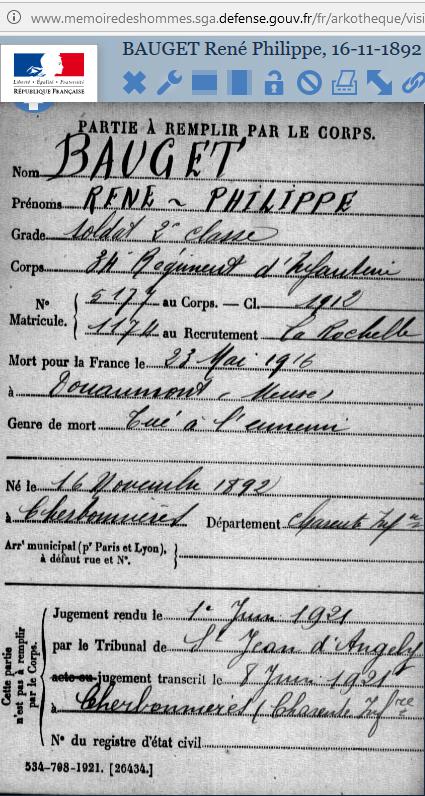 www.memoiredeshommes.sga.defense.gouv.fr/fr/arkotheque/visi
BAUGET René Philippe, 16-11-1892
Liberté • Égalité • Fraternité
RÉPUBLIQUE FRANÇAISE
PARTIE À REMPLIR PAR LE CORPS.
Nom BAUGET
Prénoms RENÉ ~ PHILIPPE
Grade Soldat 2e classe
Corps 34e Régiment d'Infanterie
N° Matricule. { 5177 au Corps. — Cl. 1912
1174 au Recrutement La Rochelle
Mort pour la France le 23 Mai 1916
à Douaumont (Meuse)
Genre de mort Tué à l'ennemi
Né le 16 Novembre 1892
à Cherbonnières Département Charente Infre
Arrt municipal (pr Paris et Lyon), à défaut rue et N°. }
Cette partie n'est pas à remplir par le Corps.
Jugement rendu le 1er Juin 1921
par le Tribunal de St Jean d'Angely
acte ou jugement transcrit le 8 Juin 1921
à Cherbonnières (Charente Infre
N° du registre d'état civil
534-708-1921. [26434.]